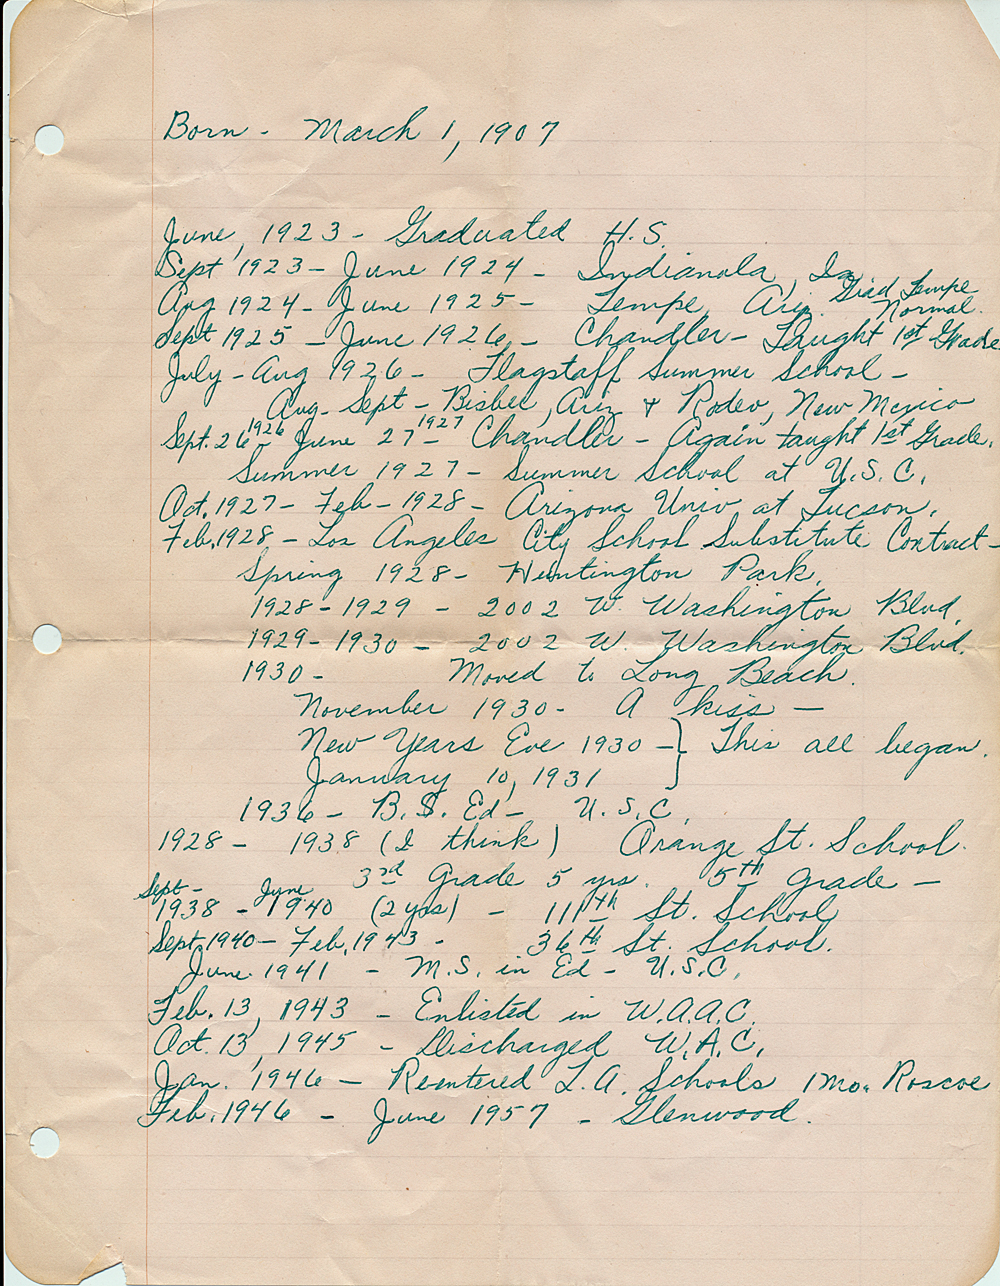 Born - March 1, 1907
June, 1923 - Graduated H.S.
Sept 1923 - June 1924 - Indianola, Ia.
Aug 1924 - June 1925 - Tempe, Ariz. Grad Tempe Normal.
Sept 1925 - June 1926 - Chandler - Taught 1st Grade
July - Aug 1926 - Flagstaff Summer School -
Aug - Sept - Bisbee, Ariz & Rodeo, New Mexico
Sept. 26 1926 - June 27 1927 - Chandler - Again taught 1st Grade.
Summer 1927 - Summer School at U.S.C.
Oct. 1927 - Feb - 1928 - Arizona Univ. at Tucson.
Feb. 1928 - Los Angeles City School Substitute Contract -
Spring 1928 - Huntington Park.
1928 - 1929 - 2002 W. Washington Blvd.
1929 - 1930 - 2002 W. Washington Blvd.
1930 - Moved to Long Beach.
November 1930 - A kiss -
New Years Eve 1930 - } This all began.
January 10, 1931
1936 - B.S. Ed - U.S.C.
1928 - 1938 (I think) Orange St. School.
3rd Grade 5 yrs. 5th grade -
Sept - June
1938 - 1940 (2 yrs) - 111th St. School
Sept. 1940 - Feb. 1943 - 36th St. School.
June 1941 - M.S. in Ed - U.S.C.
Feb. 13, 1943 - Enlisted in W.A.A.C.
Oct. 13, 1945 - Discharged W.A.C.
Jan. 1946 - Reentered L.A. Schools 1 mo. Roscoe
Feb. 1946 - June 1957 - Glenwood.